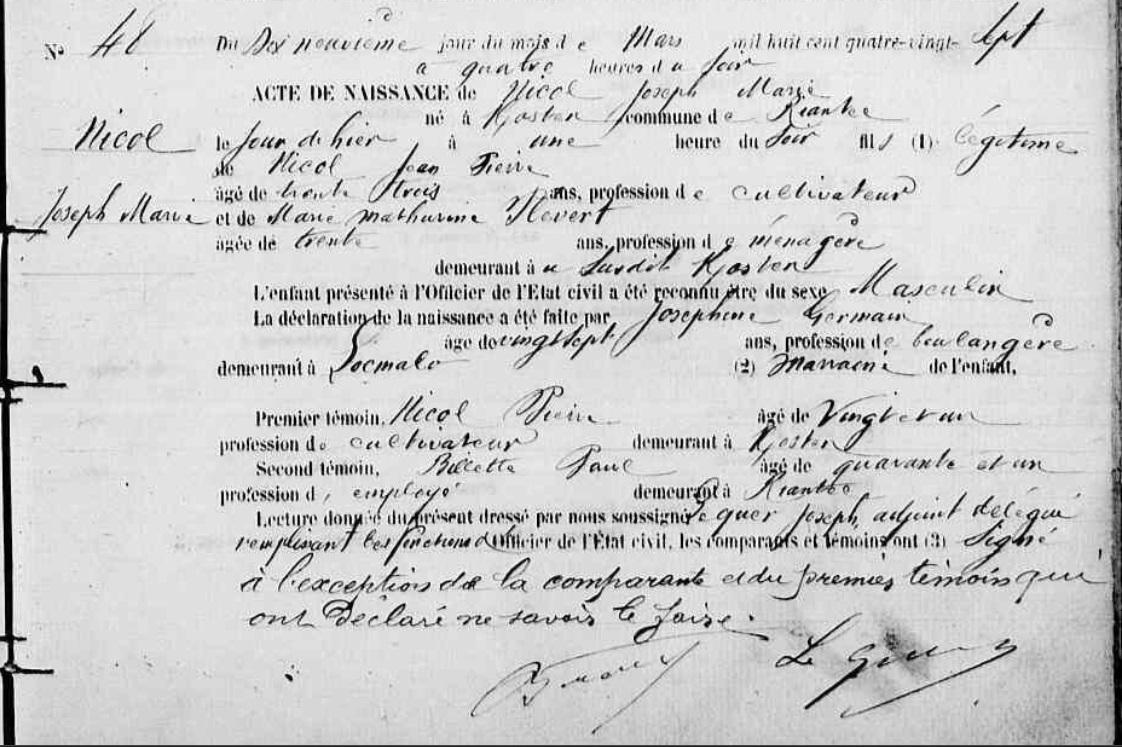 N° 48 Du Dix neuvième jour du mois de Mars mil huit cent quatre-vingt-sept
à quatre heures du Soir
ACTE DE NAISSANCE de Nicol Joseph Marie
né à Koster commune de Riantec
Nicol
le Jour d'hier à une heure du Soir fils (1) légitime
de Nicol Jean Pierre
âgé de trente trois ans, profession de cultivateur
Joseph Marie
et de Marie Mathurine Kevert
âgée de trente ans, profession de ménagère
demeurant à u Susdit Koster
L'enfant présenté à l'Officier de l'État civil a été reconnu être du sexe Masculin
La déclaration de la naissance a été faite par Joséphine Germain
âgé de vingt sept ans, profession de boulangère
demeurant à Locmalo (2) de l'enfant,
Premier témoin, Nicol Pierre âgé de Vingt et un
profession de cultivateur demeurant à Koster
Second témoin, Billette Paul âgé de quarante et un
profession d'employé demeurant à Riantec
Lecture donnée du présent dressé par nous soussigné Le quer Joseph, adjoint délégué
remplissant les fonctions d'Officier de l'État civil, les comparants et témoins ont (3) Signé
à l'exception de la comparante et du premier témoin qui
ont Déclaré ne savoir le faire.
Le Quer